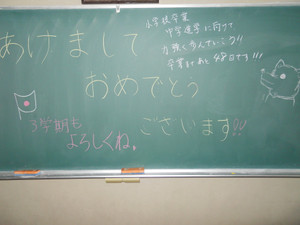 あけまして
おめでとう
ございます!!
3学期も
よろしくね。
小学校卒業
中学進学に向けて
力強く歩んでいこう!!
卒業まであと48日です!!!